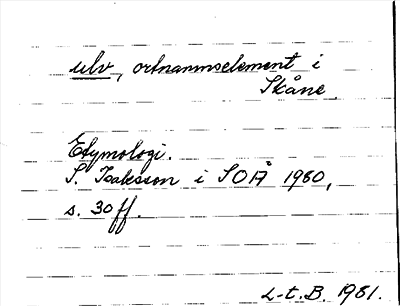 ulv, ortnamnselement i
Skåne.
Etymologi.
S. Isaksson i SOÅ 1980,
s. 30 ff.
L-t. B. 1981.